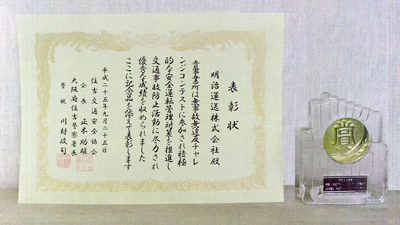 表彰状
明治運送株式会社殿
貴事業所は無事故無違反チャレ
ンジコンテストに参加され積極
的な安全運転管理対策を推進し
交通事故防止活動に尽力され
優秀な成績を収められました
ここに記念品を添えて表彰します
平成二十五年九月二十五日
住吉交通安全協会
会長 正木助雄
大阪府住吉警察署長
警視 川村政司
賞